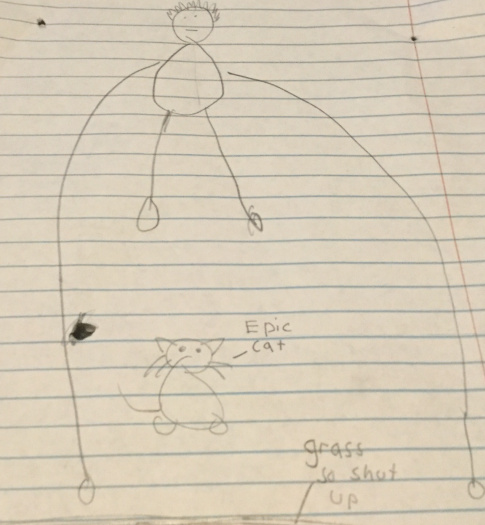 Epic
cat
grass
so shut
up